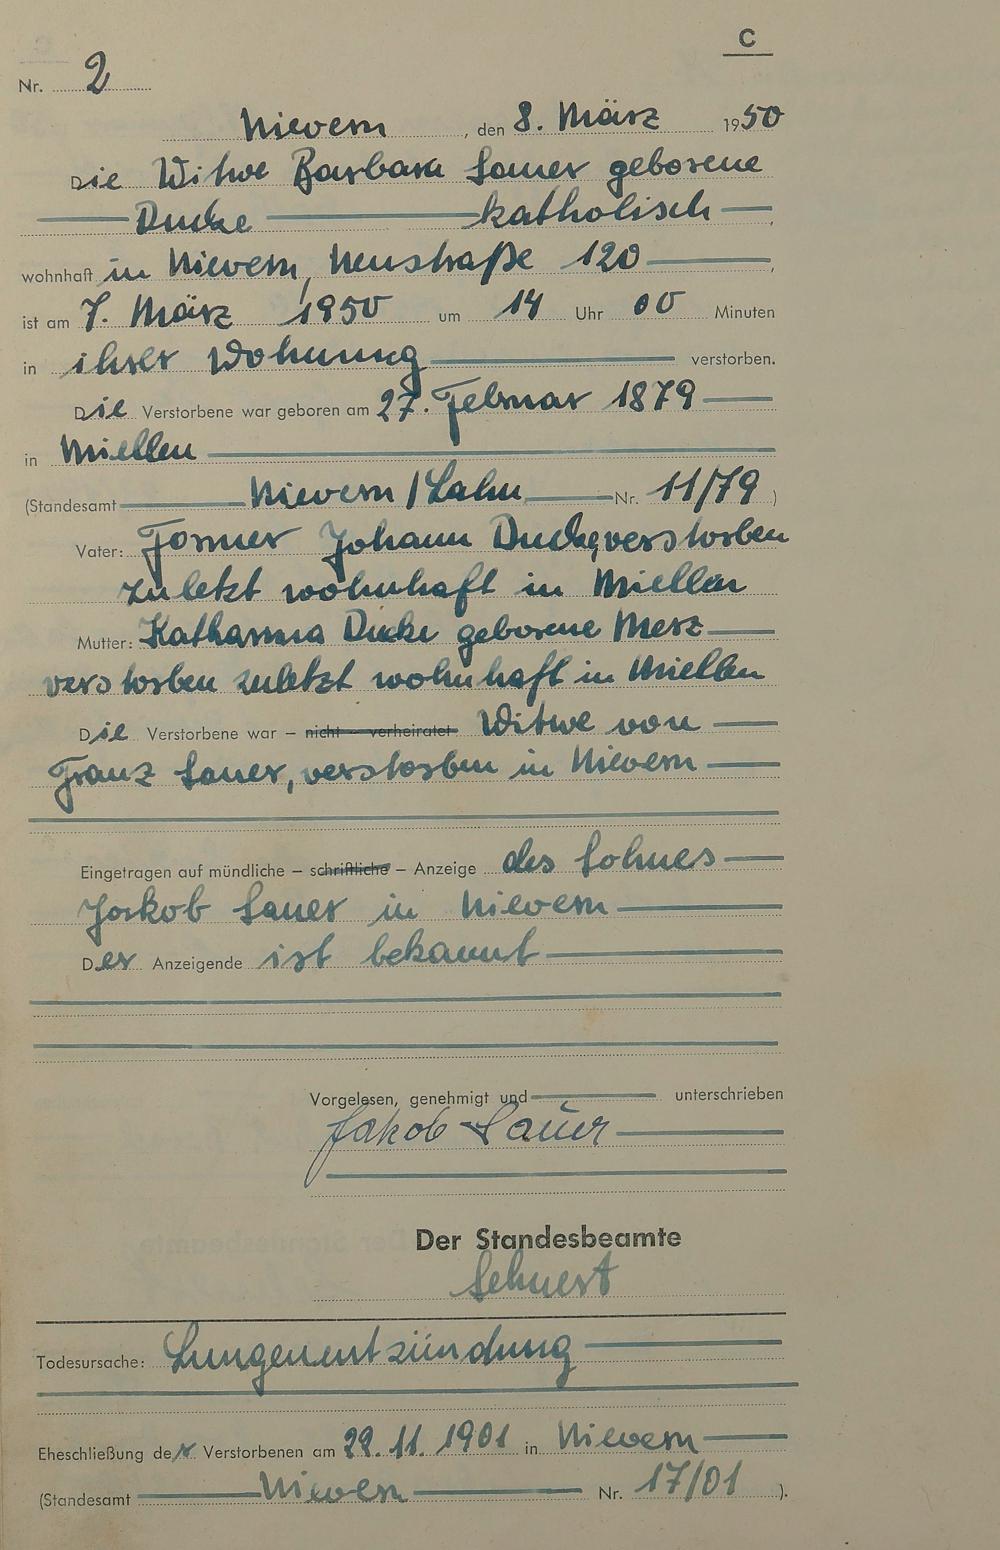 C
Nr. 2
Nievern, den 8. März 1950
Die Witwe Barbara Sauer geborene
Ducke katholisch,
wohnhaft in Nievern, Neustraße 120,
ist am 7. März 1950 um 14 Uhr 00 Minuten
in ihrer Wohnung verstorben.
Die Verstorbene war geboren am 27. Februar 1879
in Miellen
(Standesamt Nievern/Lahn Nr. 11/79)
Vater: Former Johann Ducke, verstorben
zuletzt wohnhaft in Miellen
Mutter: Katharina Ducke geborene Merz
verstorben zuletzt wohnhaft in Miellen
Die Verstorbene war – nicht – verheiratet Witwe von
Franz Sauer, verstorben in Nievern
Eingetragen auf mündliche – schriftliche – Anzeige des Sohnes
Jakob Sauer in Nievern
Der Anzeigende ist bekannt
Vorgelesen, genehmigt und unterschrieben
Jakob Sauer
Der Standesbeamte
Todesursache: Lungenentzündung
Eheschließung der Verstorbenen am 29.11.1901 in Nievern
(Standesamt Nievern Nr. 17/01).